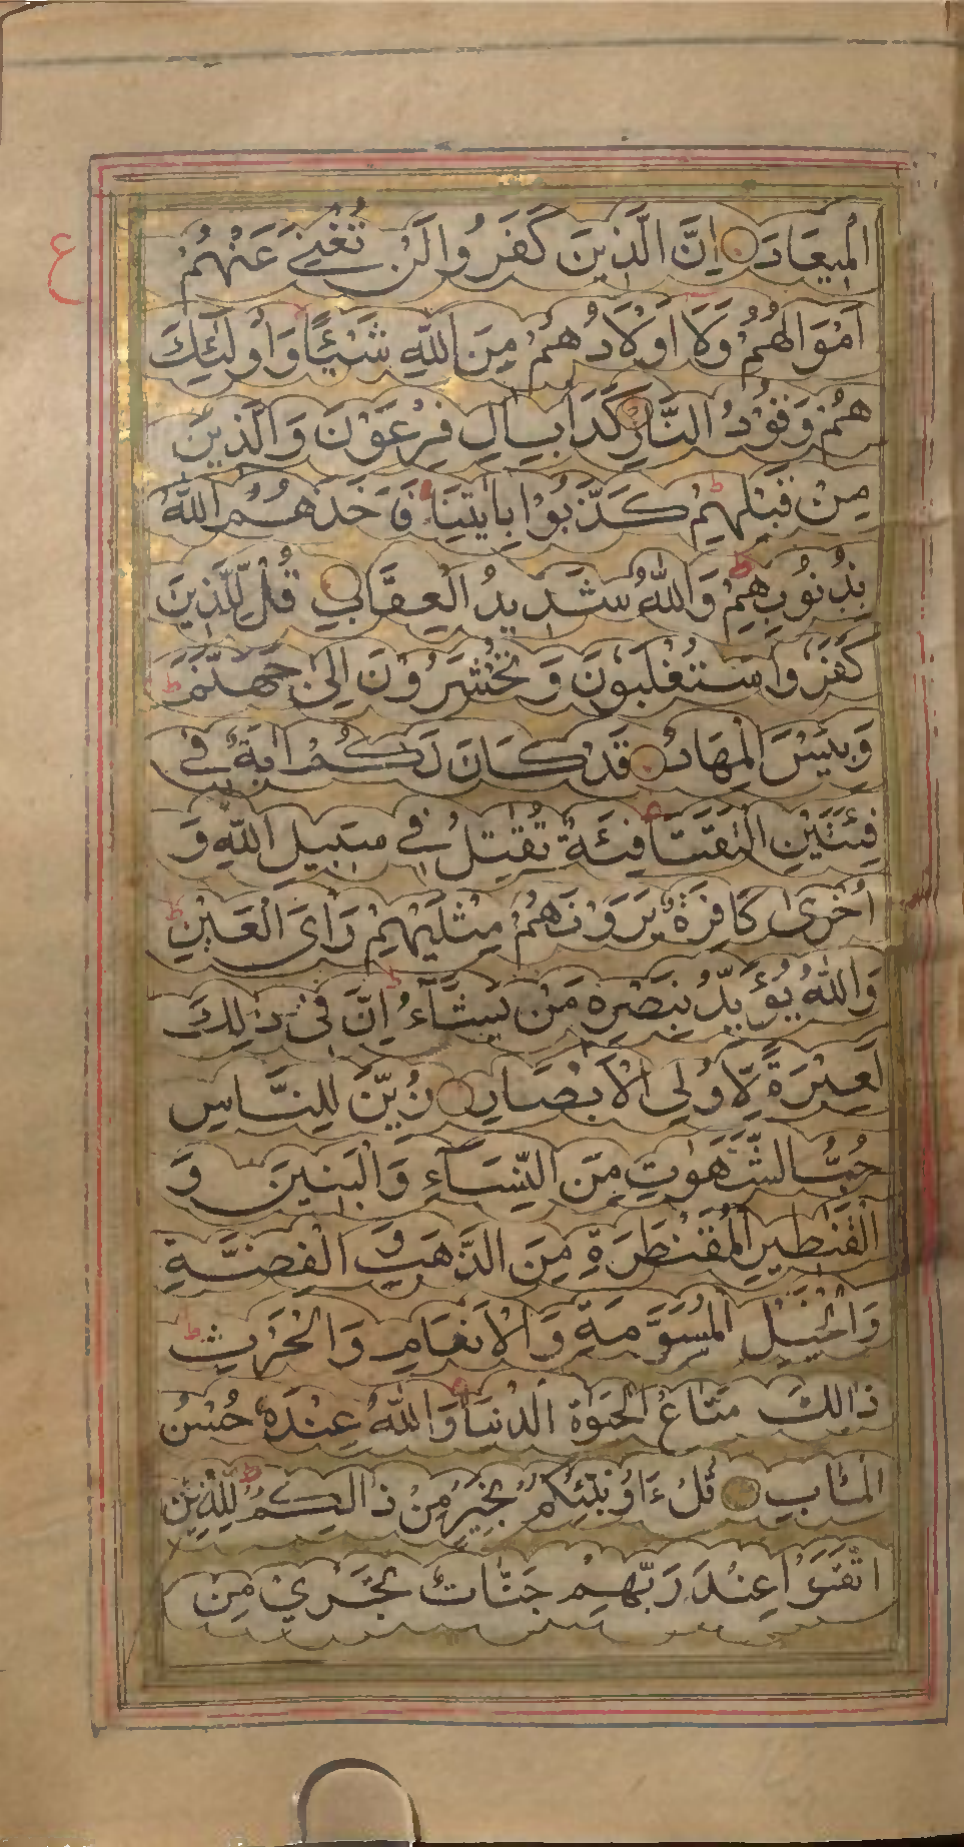 الْمِيعَادَ اِنَّ الَّذِينَ كَفَرُوا لَنْ تُغْنِيَ عَنْهُمْ
ع
اَمْوَالُهُمْ وَلَا اَوْلَادُهُمْ مِنَ اللّٰهِ شَيْئًا وَاُولٰئِكَ
هُمْ وَقُوْدُ النَّارِ كَدَأْبِ اٰلِ فِرْعَوْنَ وَالَّذِينَ
مِنْ قَبْلِهِمْ ط كَذَّبُوْا بِاٰيٰتِنَا فَاَخَذَهُمُ اللّٰهُ
بِذُنُوبِهِمْ ط وَاللّٰهُ شَدِيدُ الْعِقَابِ قُلْ لِلَّذِينَ
كَفَرُوا سَتُغْلَبُونَ وَتُحْشَرُوْنَ اِلٰى جَهَنَّمَ ط
وَبِئْسَ الْمِهَادُ قَدْ كَانَ لَكُمْ اٰيَةٌ فِي
فِئَتَيْنِ الْتَقَتَا فِئَةٌ تُقَاتِلُ فِي سَبِيلِ اللّٰهِ وَ
اُخْرٰى كَافِرَةٌ يَرَوْنَهُمْ مِثْلَيْهِمْ رَاْىَ الْعَيْنِ ط
وَاللّٰهُ يُؤَيِّدُ بِنَصْرِهٖ مَنْ يَشَآءُ ط اِنَّ فِيْ ذٰلِكَ
لَعِبْرَةً لِّاُولِي الْاَبْصَارِ زُيِّنَ لِلنَّاسِ
حُبُّ الشَّهَوٰتِ مِنَ النِّسَآءِ وَالْبَنِينَ وَ
الْقَنٰطِيرِ الْمُقَنْطَرَةِ مِنَ الذَّهَبِ وَالْفِضَّةِ
وَالْخَيْلِ الْمُسَوَّمَةِ وَالْاَنْعَامِ وَالْحَرْثِ ط
ذَالِكَ مَتَاعُ الْحَيٰوةِ الدُّنْيَا وَاللّٰهُ عِنْدَهٗ حُسْنُ
الْمَاٰبِ قُلْ ءَاُوُنَبِّئُكُمْ بِخَيْرٍ مِنْ ذَالِكُمْ ط لِلَّذِينَ
اتَّقَوْا عِنْدَ رَبِّهِمْ جَنَّاتٌ تَجْرِي مِنْ